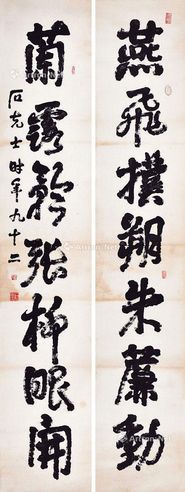 燕飛撲朔朱簾動
蘭露張柳眼開
石克士时年九十二